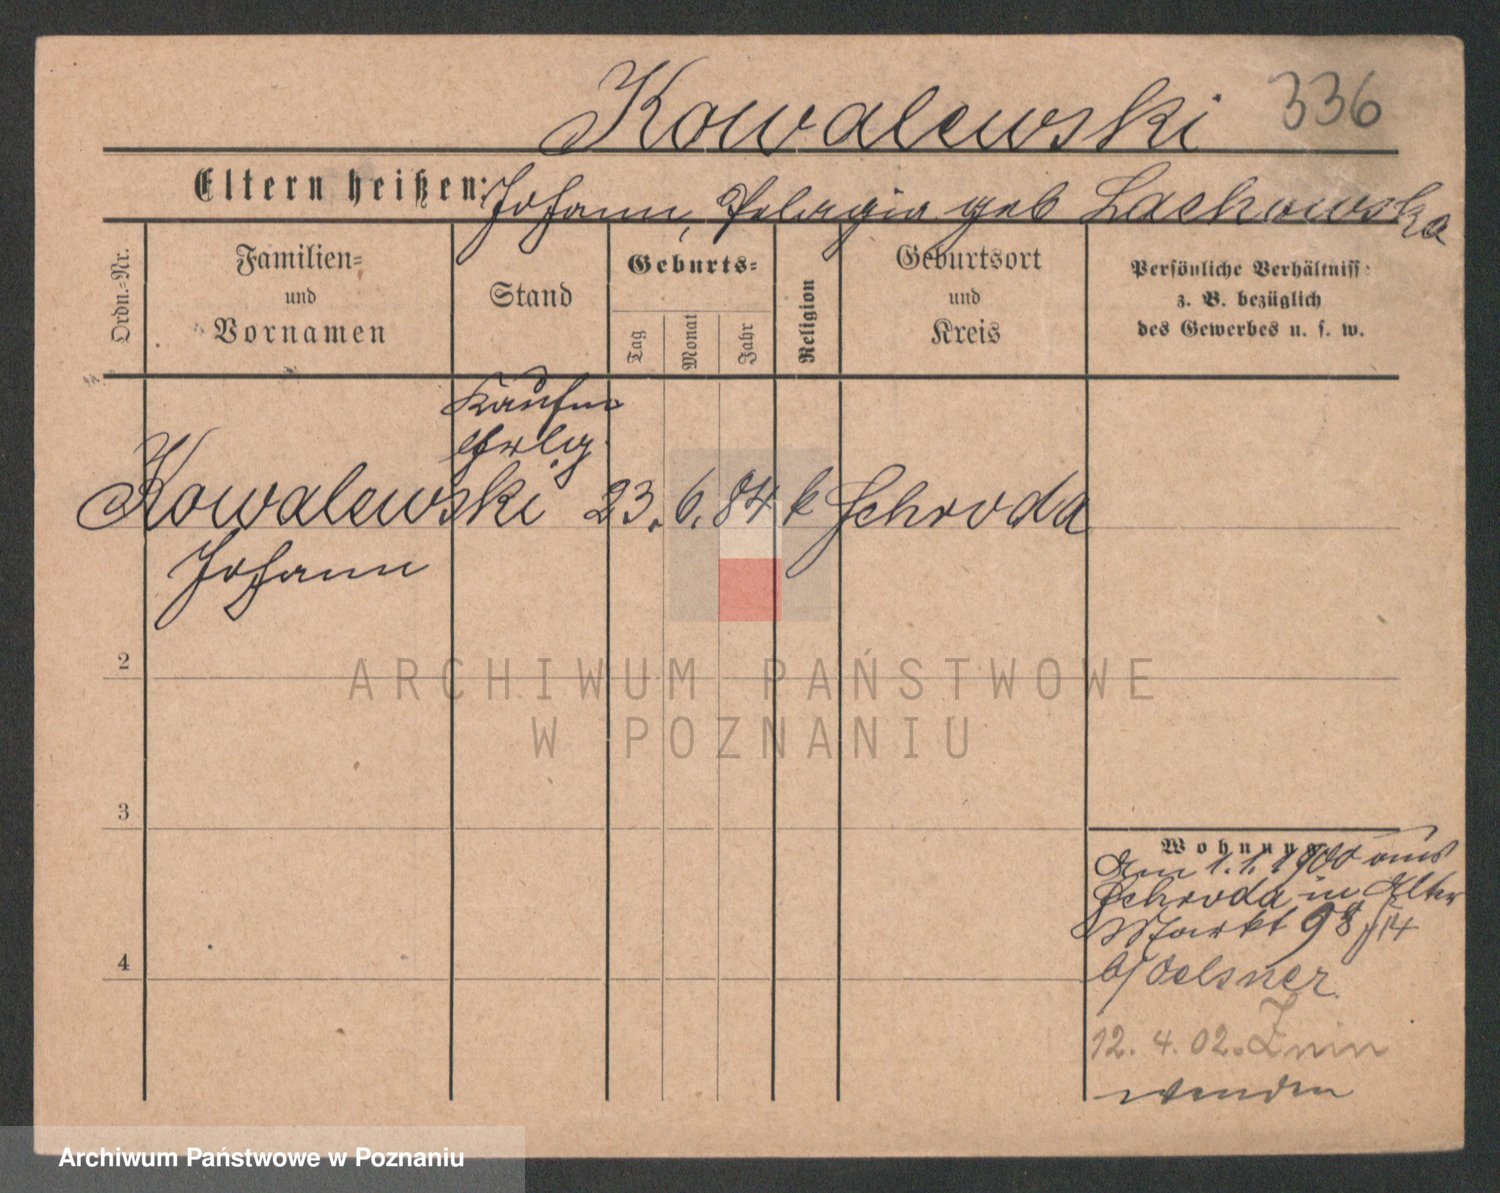 Kowalewski 336
Eltern heißen: Johann, Pelagia geb Lachowska
Ordn.=Nr.
Familien=
und
Vornamen
Stand
Geburts=
Tag
Monat
Jahr
Religion
Geburtsort
und
Kreis
Persönliche Verhältniss
z. B. bezüglich
des Gewerbes u. s. w.
Kaufm
Kowalewski 23. 6. 84 k Schroda
Johann
2
3
4
Wohnung
Am 1.1.1900 aus
Schroda in Alter
Markt 98
b/Oelsner
12. 4. 02. Znin
wenden
ARCHIWUM PAŃSTWOWE
W POZNANIU
Archiwum Państwowe w Poznaniu